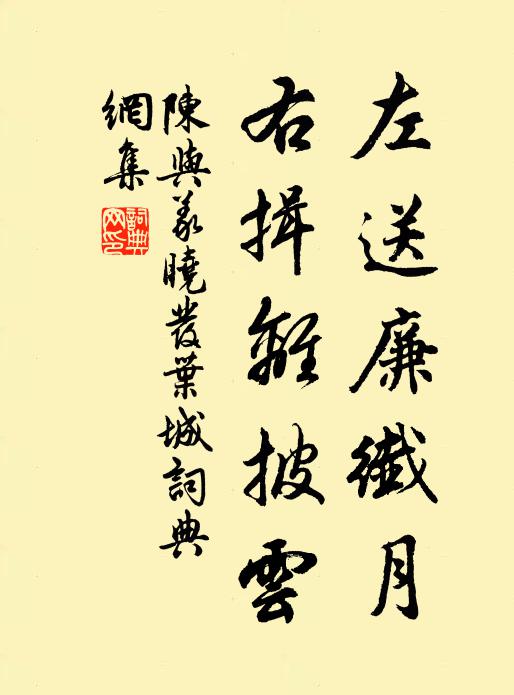 左送廉纖月
右揖離披雲
陳與義曉發葉城詞典
網集
詞典网印